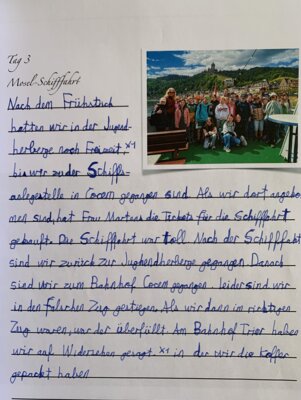 Tag 3
Mosel-Schifffahrt
Nach dem Frühstück
hatten wir in der Jugend-
herberge noch Freizeit, x1
bis wir zu der Schiffs-
anlegestelle in Cocem gegangen sind. Als wir dort angekom
men sind, hat Frau Martens die Tickets für die Schifffahrt
gekauft. Die Schifffahrt war toll. Nach der Schifffahrt
sind wir zurück zur Jughendherberge gegangen. Danach
sind wir zum Bahnhof Cocem gegangen. Leider sind wir
in den falschen Zug gestiegen. Als wir dann im richtigen
Zug waren, war der überfüllt. Am Bahnhof Trier haben
wir auf Widersehen gesagt. x1 in der wir die Koffer
gepackt haben